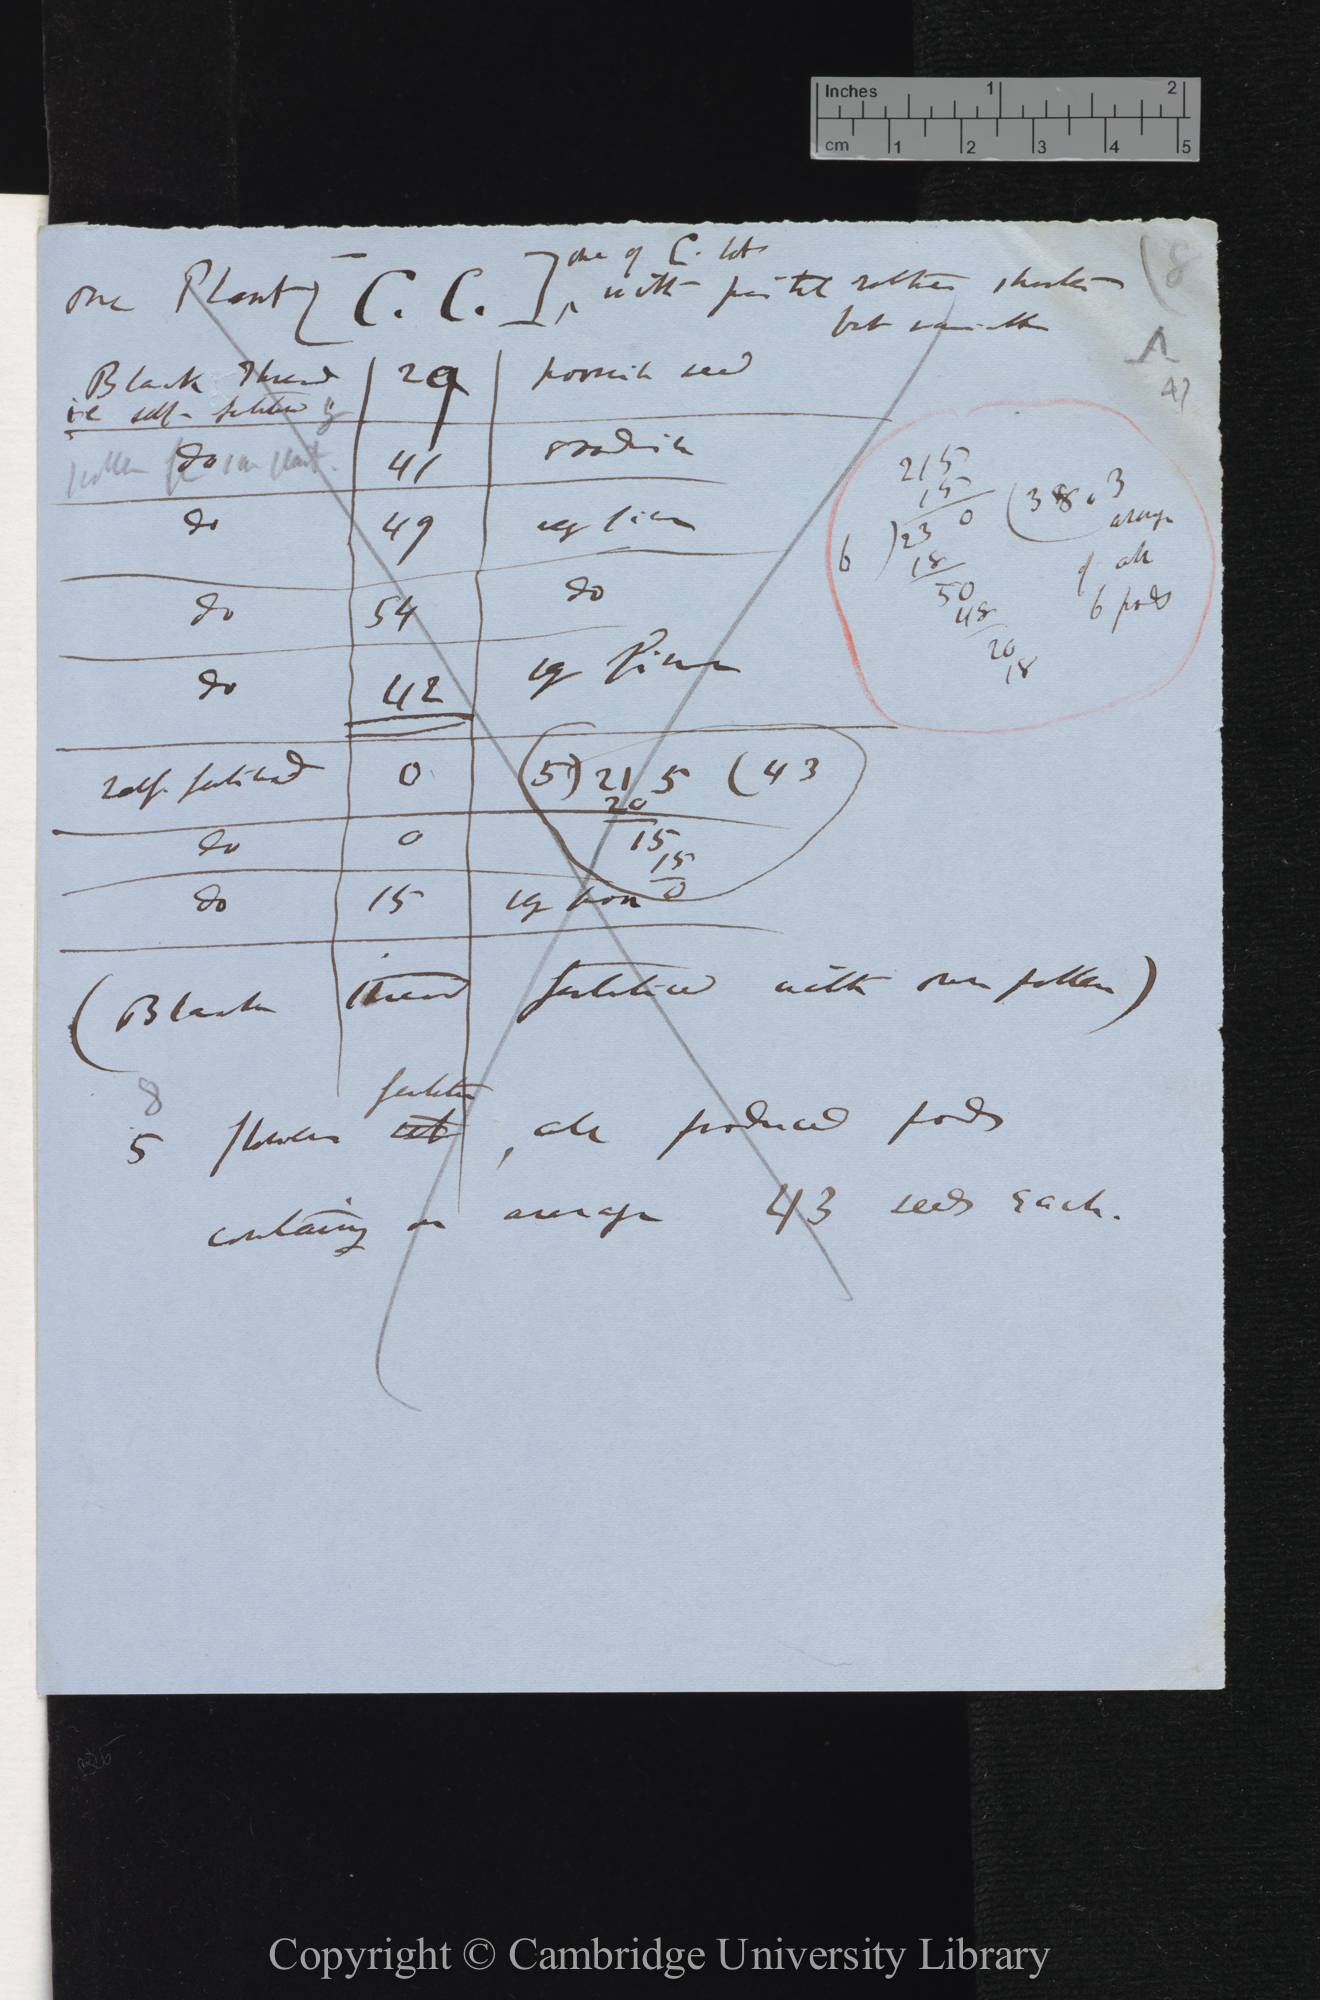 Inches 1 2
cm 1 2 3 4 5
(8
A
47
one Plant [C. C.] one of C. lot
with pistil rather shorter
but variable
Black Thread 29 poorish seed
i.e self-fertilised by
pollen own plant.
do 41 goodish
do 49 very fine
do 54 do
do 42 very fine
215
15
6 ) 23 0 (38.3
average
of all
6 pods
18
50
48
20
18
self-fertilised 0
5) 215 (43
20
15
15
0
do 0
do 15 very poor
(Black thread fertilised with own pollen)
8
fertilised
5 flowers set, all produced pods
containing on average 43 seeds each.
Copyright © Cambridge University Library